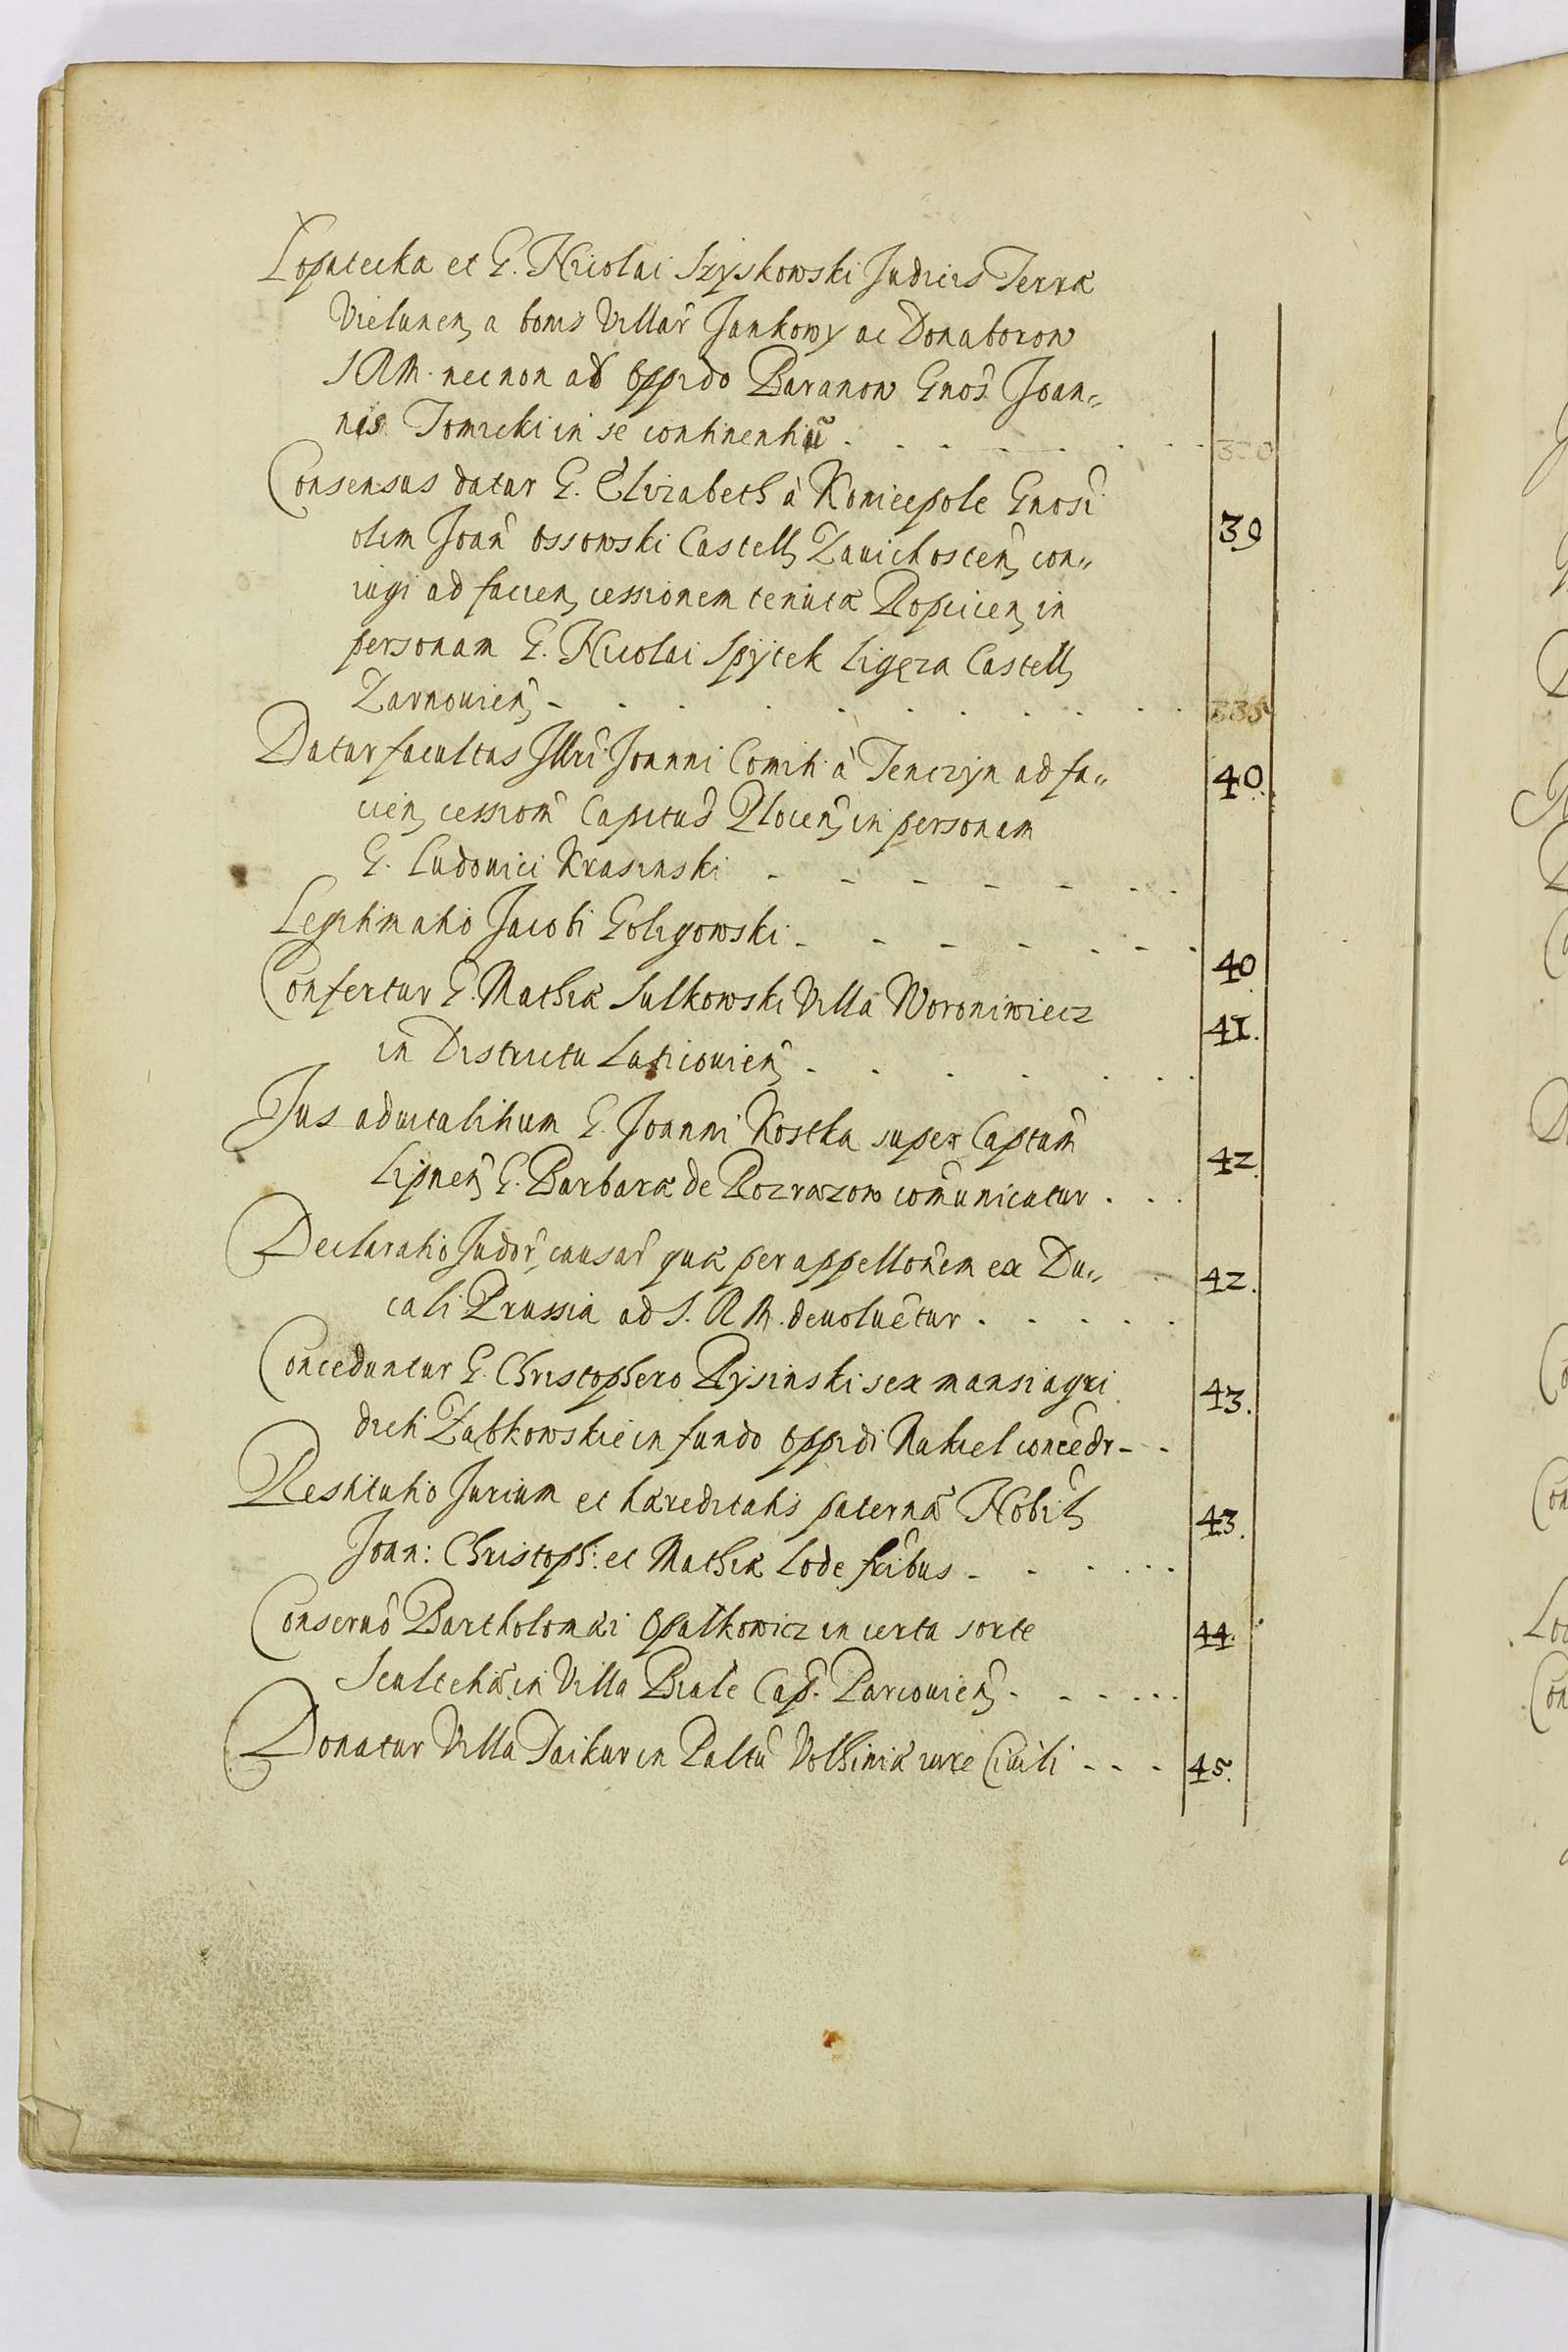 Lopatecka et G. Nicolai Szyskowski Judicis Terræ
Vielunen, a bonis Villar̃ Jankowy ac Donaboron
SRM. necnon ab Oppido Baranow Gnos̃ Joan„
nis Tomicki in se continentiũ . . . . . . .
Consensus datur G. Elizabeth à Koniecpole Gnosi
olim Joañ Ossowski Castell, Zavichosten̂, con„ 39
iugi ad facien, cessionem tenutæ Ropcicen, in
personam G. Nicolai Spÿtek Ligęza Castell,
Zarnouien̂, . . . . . . . . . 335
Datur facultas Illri Joanni Comiti à Tenczÿn ad fa„ 40.
cien, cession̂ Capitus̃ Plocen̂, in personam
G. Ludouici Krasinski - - - - - - -
Legitimatio Jacobi Goligowski - - - - - - - 40
Confertur G. Mathiæ Sulkowski Villa Woroniwiecz 41.
in Districtu Laticouien̂, . . . . . . .
Jus aduitalitium G. Joanni Kostka super Captum̂ 42
Lipnen̂, G. Barbaræ de Rozrazow com̃unicatur . . .
Declaratio Judor̂, causar̂ quæ per appellon̂em ex Du„ 42.
cali Prussia ad S. R M. deuoluêtur . . . . .
Conceduntur G. Christophero Rÿsinski sex mansi agri 43.
dicti Zabkowskie in fundo Oppidi Nakiel concedr - -
Restitutio Jurium et hæreditatis paternæ Nobil, 43.
Joan: Christoph: et Mathiæ Lode fribus - . . . . .
Conseruô Bartholomæi Opatkowicz in certa sorte 44.
Scultetiæ in Villa Biale Cap̂. Parcouien̂, . . . . . .
Donatur Villa Daikur in Paltû Volhiniæ iure Ciuili - - - 45.